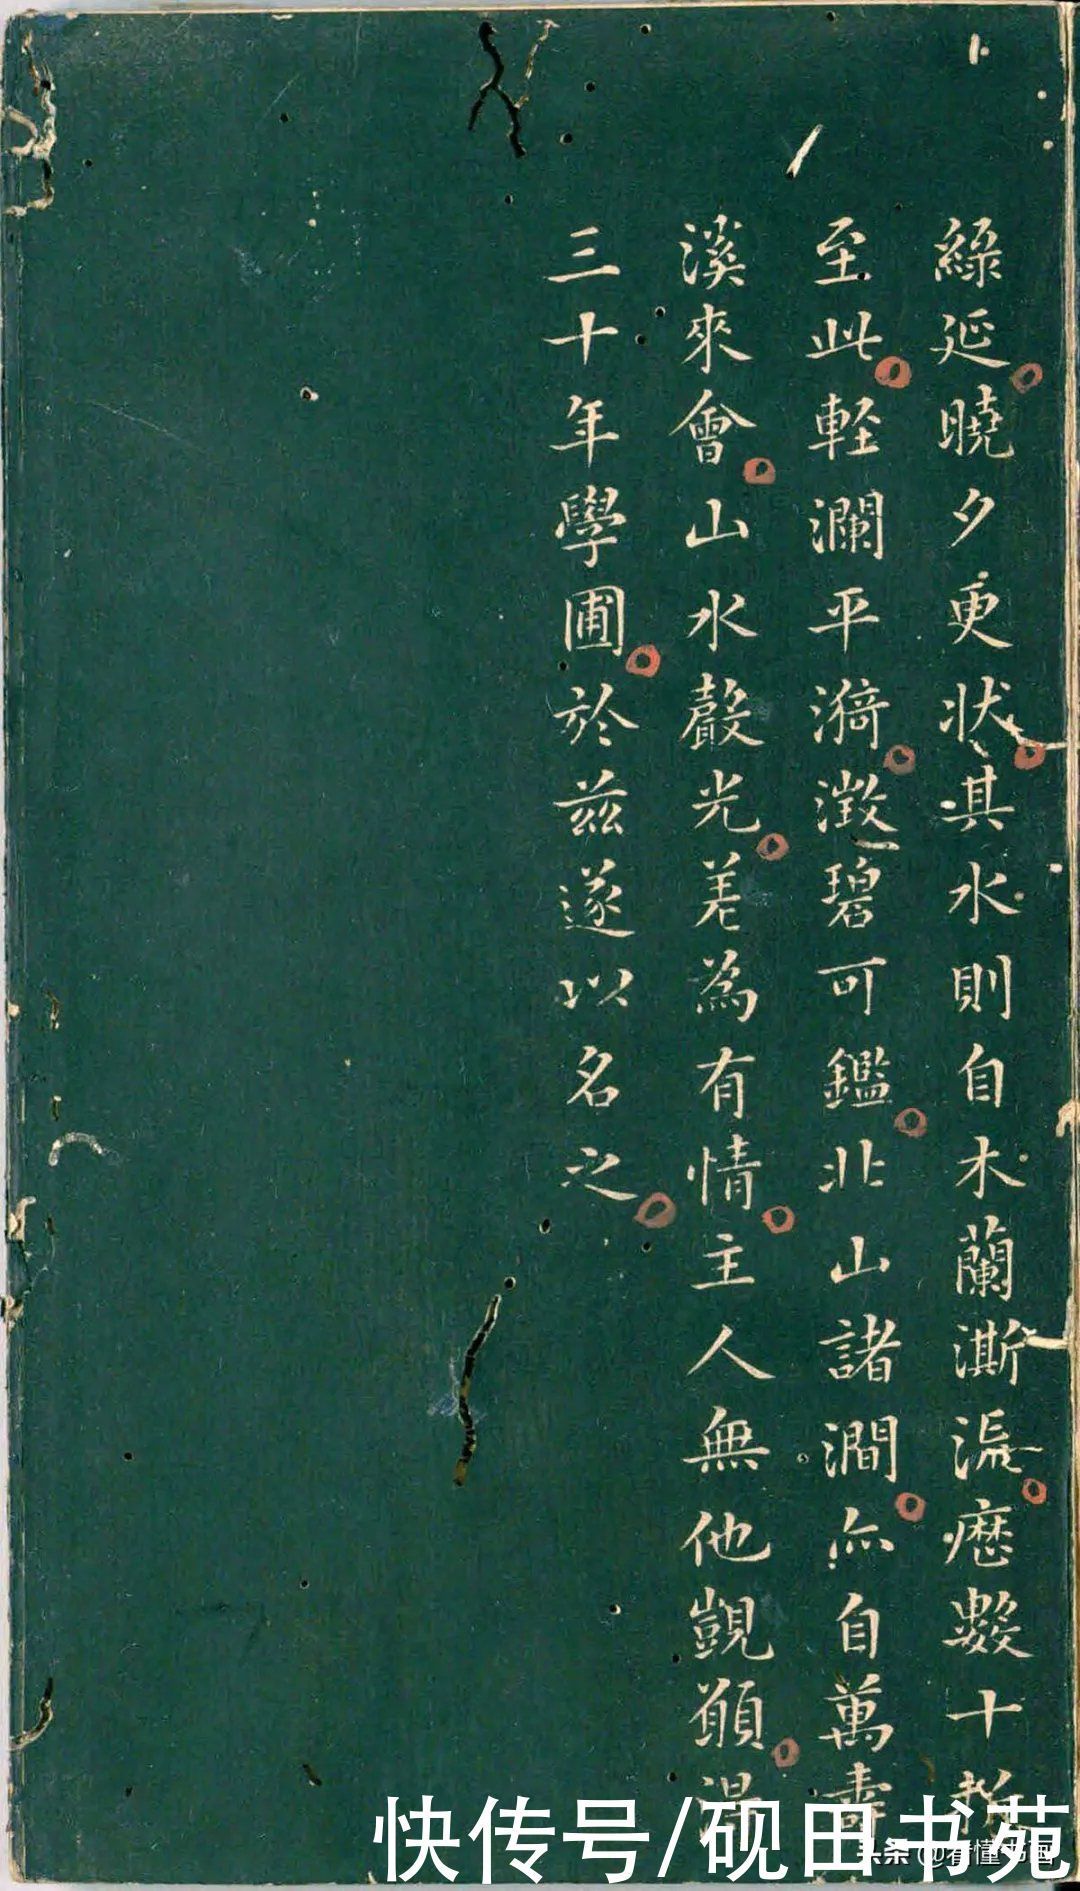 綿延曉夕更狀其水則自木蘭澌流歷數十折
至此輕瀾平漪澂碧可鑑北山諸澗亦自萬壽
溪來會山水聲光差為有情主人無他覬願得
三十年學圃於兹遂以名之
快传号/砚田书苑
头条 @看懂书画